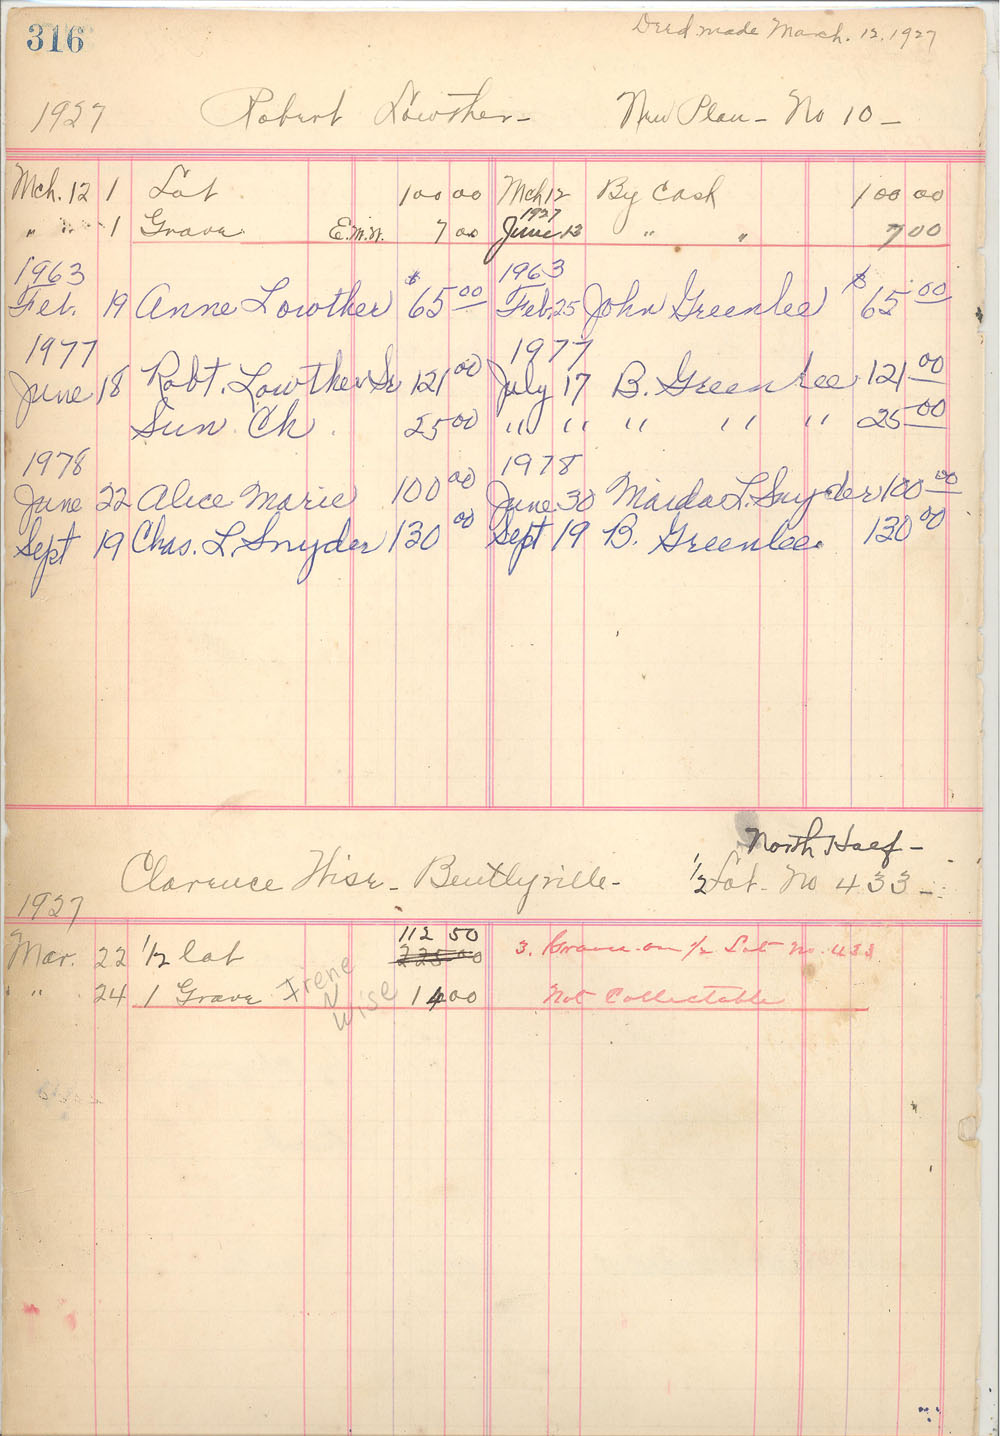 316
Deed made March. 12. 1927
1927 Robert Lowther - New Plan - No 10 -
Mch. 12 1 Lot 100 00 Mch 12 By Cash 100 00
" " 1 Grave E.M.W. 7 00 1927 June 13 " " 7 00
1963 1963
Feb. 19 Anne Lowther $ 65 00 Feb. 25 John Greenlee $ 65 00
1977 1977
June 18 Robt. Lowther Sr 121 00 July 17 B. Greenlee 121 00
Sun Ch. 25 00 " " " " " 25 00
1978 1978
June 22 Alice Marie 100 00 June 30 L. Snyder 100 00
Sept 19 Chas. L. Snyder 130 00 Sept 19 B. Greenlee. 130 00
North Half -
1927 Clarence Wise - Bentlyville - 1/2 Lot - No 433 -
112 50
Mar. 22 1/2 lot 225 00 3. Graves on 1/2 Lot No. 433
" 24 1 Grave Irene Wise 14 00 Not Collectable